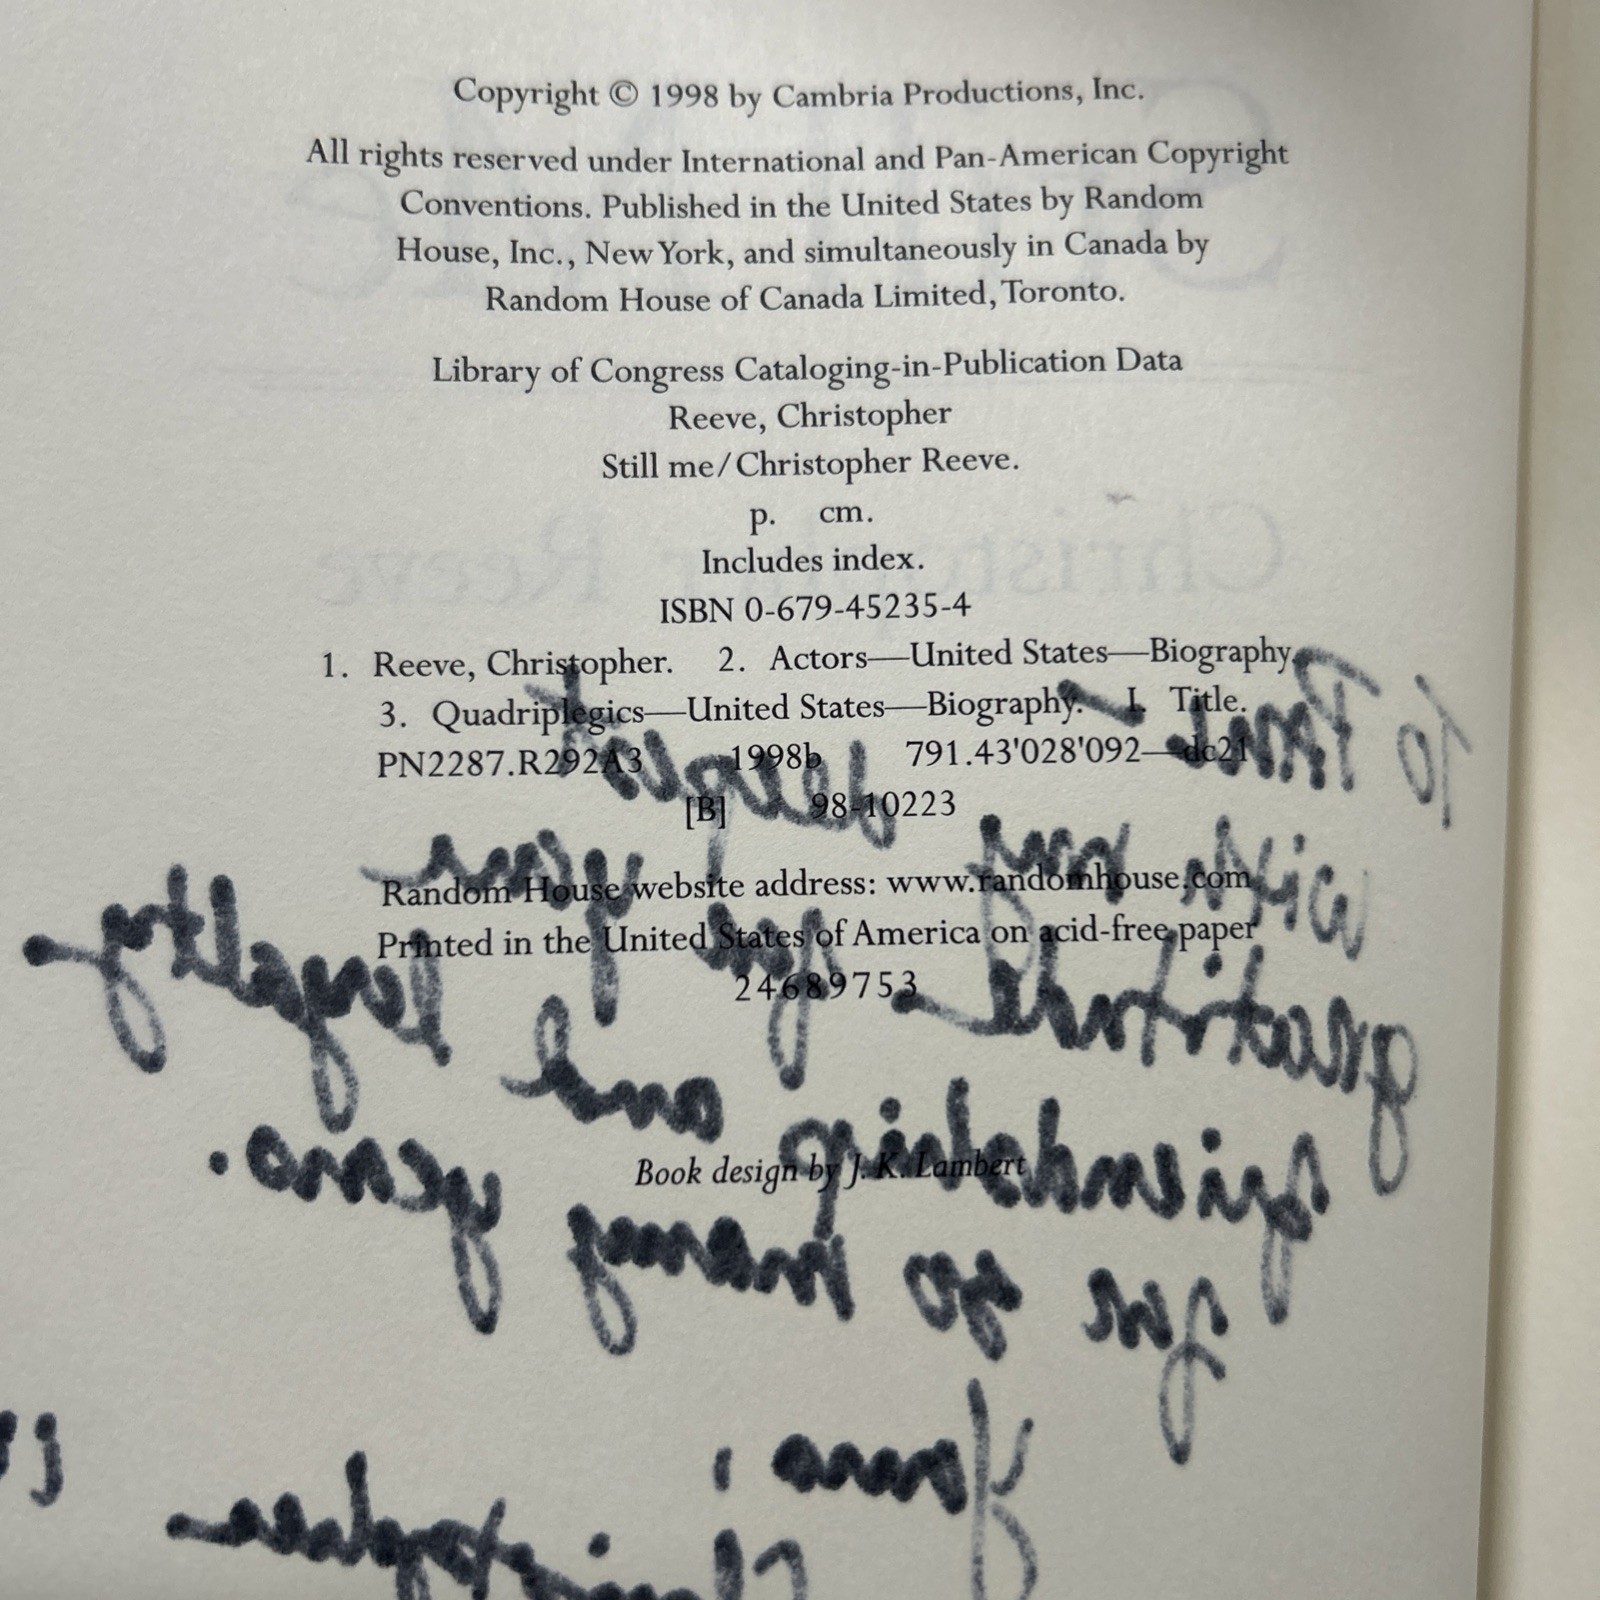 Copyright © 1998 by Cambria Productions, Inc.
All rights reserved under International and Pan-American Copyright
Conventions. Published in the United States by Random
House, Inc., New York, and simultaneously in Canada by
Random House of Canada Limited, Toronto.
Library of Congress Cataloging-in-Publication Data
Reeve, Christopher
Still me/Christopher Reeve.
p. cm.
Includes index.
ISBN 0-679-45235-4
1. Reeve, Christopher. 2. Actors—United States—Biography.
3. Quadriplegics—United States—Biography. I. Title.
PN2287.R292A3 1998b 791.43'028'092—dc21
[B] 98-10223
Random House website address: www.randomhouse.com
Printed in the United States of America on acid-free paper
24689753
Book design by J. K. Lambert
To
with my
gratitude for your loyalty
friendship and
for so many years.